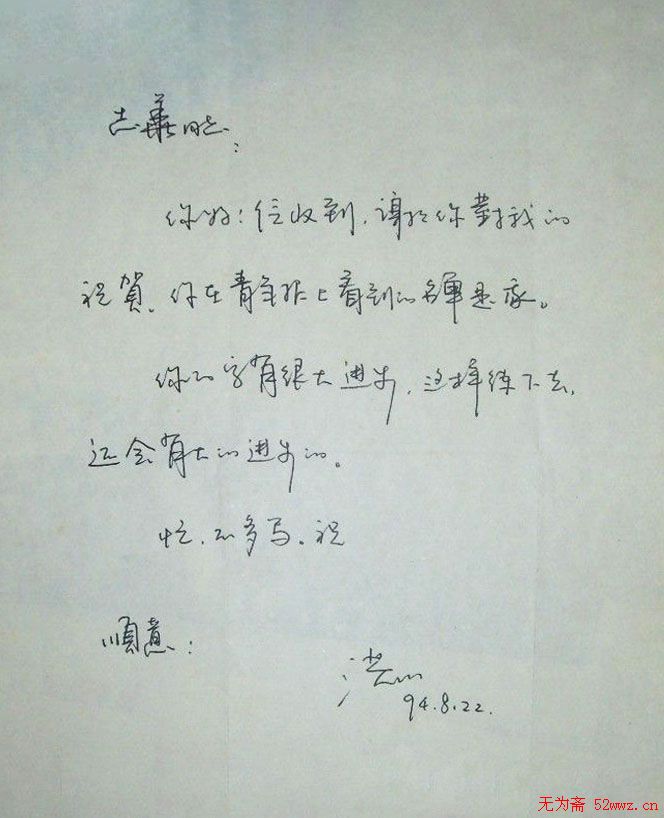 志華同志：
你好！信收到，謝謝你對我的
祝賀。你在青年报上看到的名單是我。
你的字有很大進步，这样练下去，
还会有大的進步的。
忙，不多写。祝
順意！
94.8.22.
无为斋 52wwz.cn